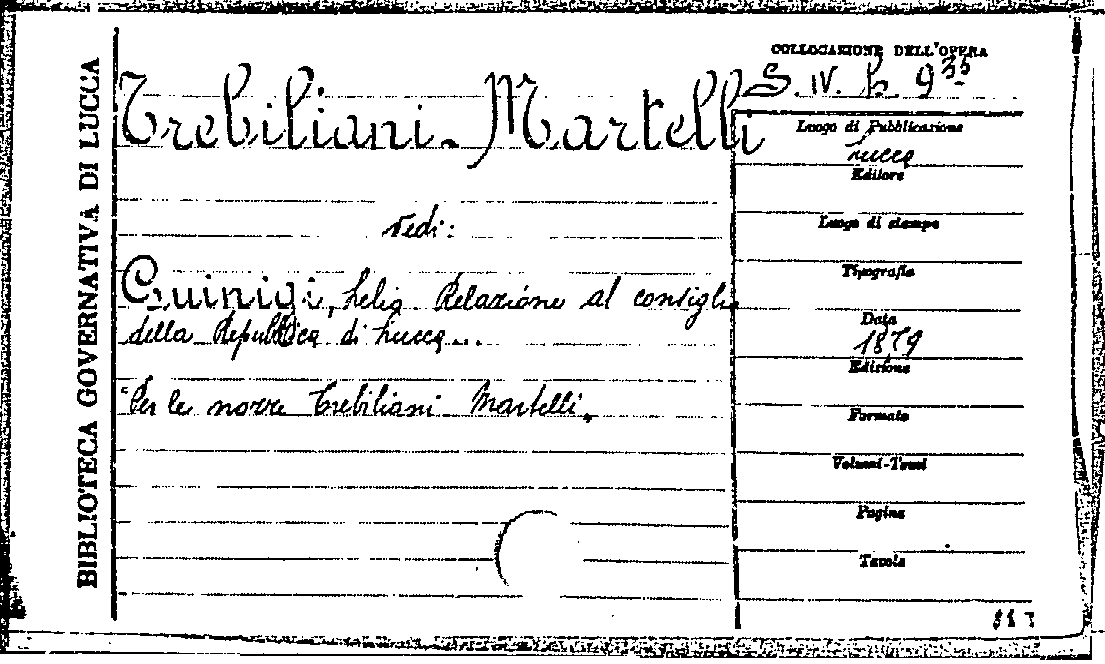 BIBLIOTECA GOVERNATIVA DI LUCCA
COLLOCAZIONE DELL'OPERA
S. IV. h. 9 35
Trebiliani-Martelli
vedi:
Guinigi, Lelio Relazione al consiglio
della Repubblica di Lucca...
"Per le nozze Trebiliani Martelli"
Luogo di Pubblicazione
Lucca
Editore
Luogo di stampa
Tipografia
Data
1879
Edizione
Formato
Volumi-Tomi
Pagine
Tavole